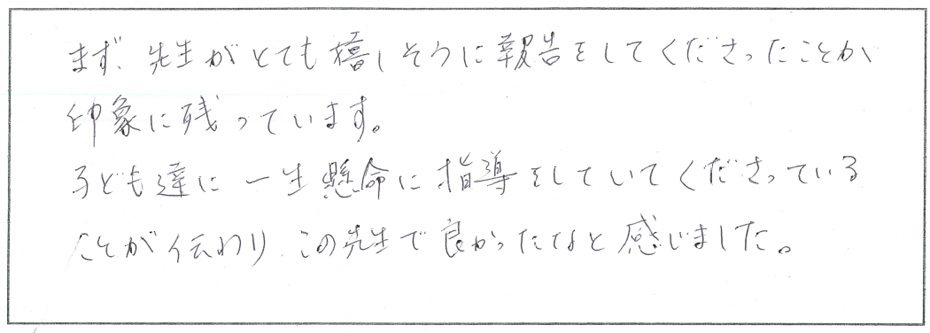 まず、先生がとても嬉しそうに報告をしてくださったことが
印象に残っています。
子ども達に一生懸命に指導をしていてくださっている
ことが伝わり、この先生で良かったなと感じました。